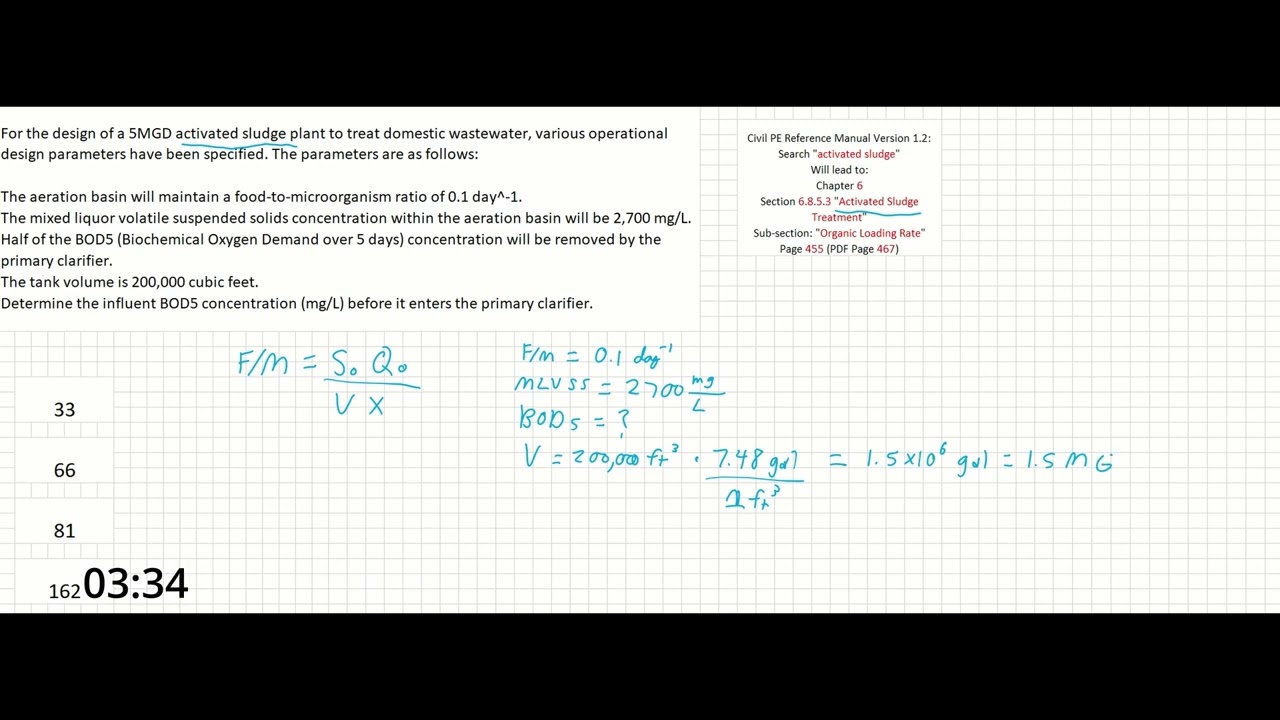 For the design of a 5MGD activated sludge plant to treat domestic wastewater, various operational
design parameters have been specified. The parameters are as follows:
The aeration basin will maintain a food-to-microorganism ratio of 0.1 day^-1.
The mixed liquor volatile suspended solids concentration within the aeration basin will be 2,700 mg/L.
Half of the BOD5 (Biochemical Oxygen Demand over 5 days) concentration will be removed by the
primary clarifier.
The tank volume is 200,000 cubic feet.
Determine the influent BOD5 concentration (mg/L) before it enters the primary clarifier.
Civil PE Reference Manual Version 1.2:
Search "activated sludge"
Will lead to:
Chapter 6
Section 6.8.5.3 "Activated Sludge
Treatment"
Sub-section: "Organic Loading Rate"
Page 455 (PDF Page 467)
F/M = S₀ Q₀
V X
F/M = 0.1 day⁻¹
MLVSS = 2700 mg
L
BOD5 = ?
V = 200,000 ft³ · 7.48 gal = 1.5×10⁶ gal = 1.5 MG
1 ft³
33
66
81
162
03:34